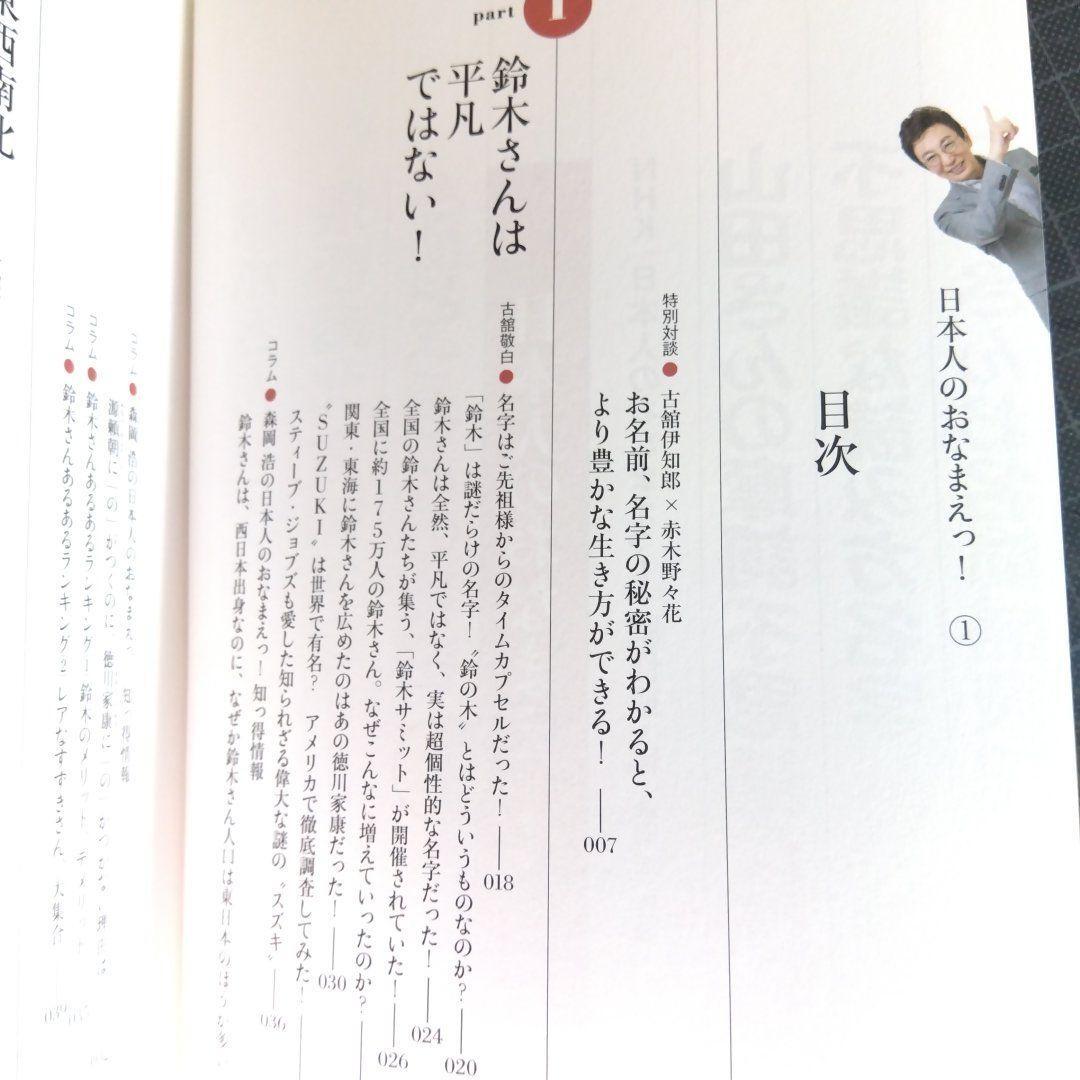 日本人のおなまえっ！ ①
目次
特別対談 ● 古舘伊知郎×赤木野々花
お名前、名字の秘密がわかると、
より豊かな生き方ができる！ ── 007
part 1
鈴木さんは
平凡
ではない！
古舘敬白 ● 名字はご先祖様からのタイムカプセルだった！ ── 018
「鈴木」は謎だらけの名字！〝鈴の木〟とはどういうものなのか？ ── 020
鈴木さんは全然、平凡ではなく、実は超個性的な名字だった！ ── 024
全国の鈴木さんたちが集う、「鈴木サミット」が開催されていた！ ── 026
全国に約175万人の鈴木さん。なぜこんなに増えていったのか？
関東・東海に鈴木さんを広めたのはあの徳川家康だった！ ── 030
〝SUZUKI〟は世界で有名？ アメリカで徹底調査してみた！
スティーブ・ジョブズも愛した知られざる偉大な謎の〝スズキ〟 ── 036
コラム ● 森岡 浩の日本人のおなまえっ！ 知っ得情報
鈴木さんは、西日本出身なのに、なぜか鈴木さん人口は東日本のほう
コラム ● 森岡 浩の日本人のお
源頼朝に「の」がつくのに、徳川家康に「の」が
コラム ● 鈴木さんあるあるランキング1 鈴木のメリット
コラム ● 鈴木さんあるあるランキング2 レアなすずきさん 大集合 ── 039
東西南北